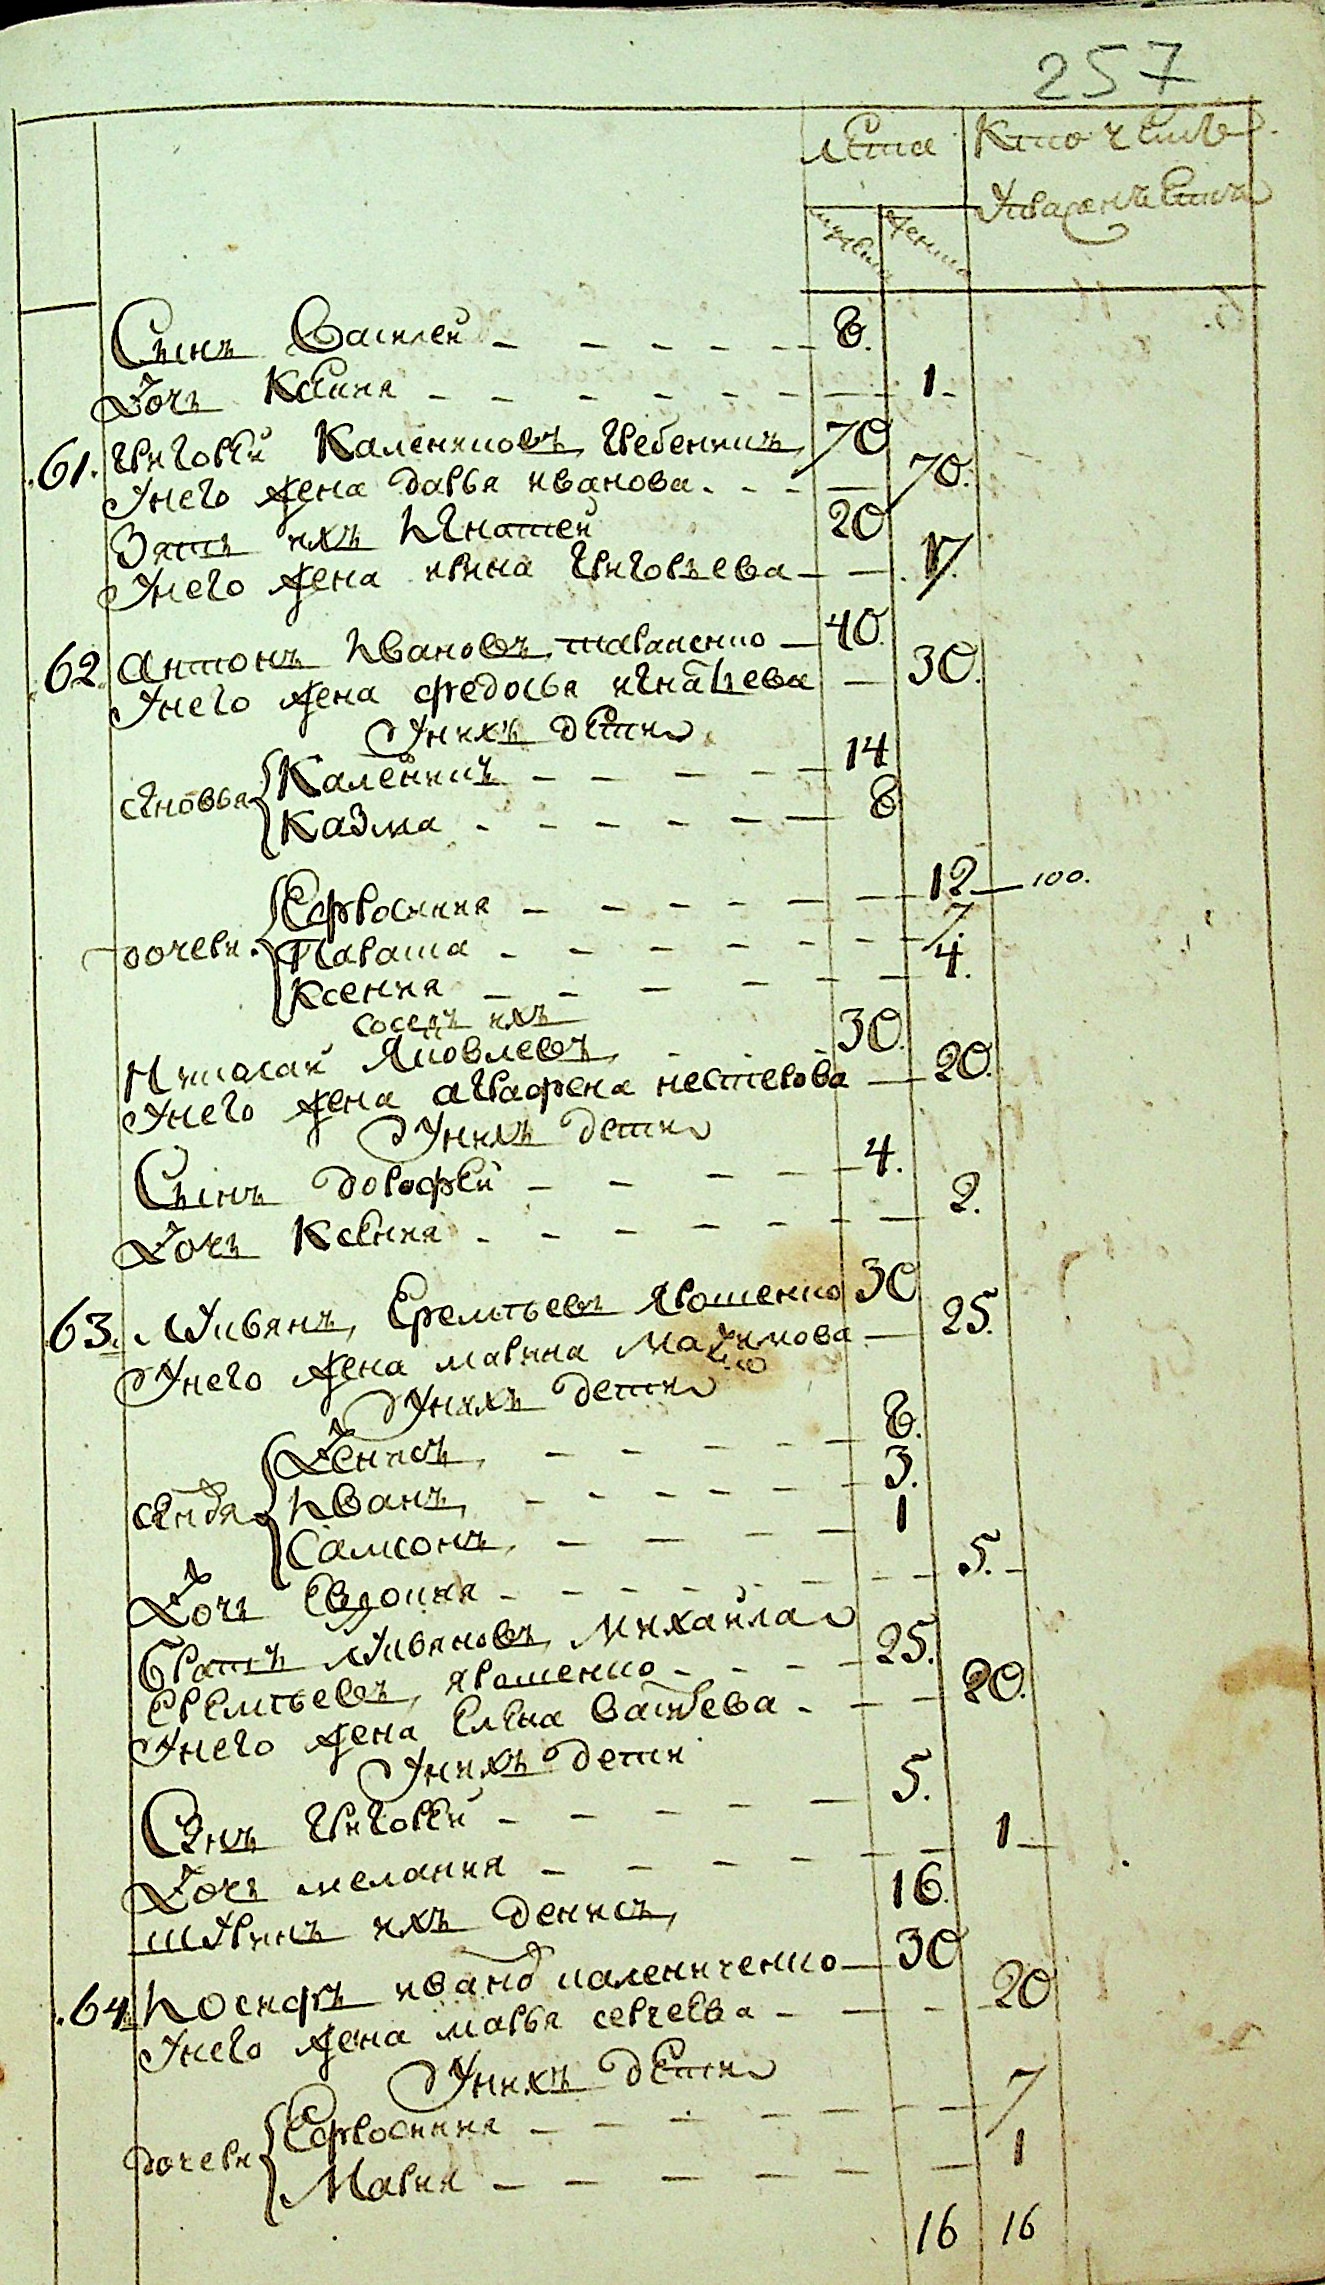 257
лѣта
Кто чемъ
мужеска
женска
Сынъ Василей 8.
Дочь Ксѣния 1
61. Григорѣй Калениковъ, Гребенникъ, 70
Унего жена дарья иванова 70.
Зять ихъ Игнатей 20
Унего жена ирина Григорьева 17.
62. антонъ Ивановъ, тараненко 40.
Унего жена федосья игнатьева 30.
Унихъ дѣти
сыновья
Каленикъ 14
Казма 8
дочери
Ефросиния 12 100.
Параша 7.
Ксения 4.
соседъ ихъ
Николай Яковлевъ, 30.
Унего жена аграфена нестерова 20.
Унихъ дети
Сынъ дорофѣй 4.
Дочь Ксѣния 2.
63. лукьянъ, Еремѣевъ ярошенко 30
Унего жена марина Мазимова 25.
Унихъ дети
Денисъ, 8.
Иванъ, 3.
Самсонъ, 1
Дочь Евдокия 5.
братъ лукьяновъ, михайла
еремѣевъ, ярошенко 25.
Унего жена елена 20.
Унихъ дети
Сынъ Григорѣй 5.
Дочь мелания 1
шуринъ ихъ денисъ, 16.
64. Иосифъ ивановъ калениченко 30
Унего жена марья сергеева 20
Унихъ дѣти
дочери
Ефросиния 7
Мария 1
16 16